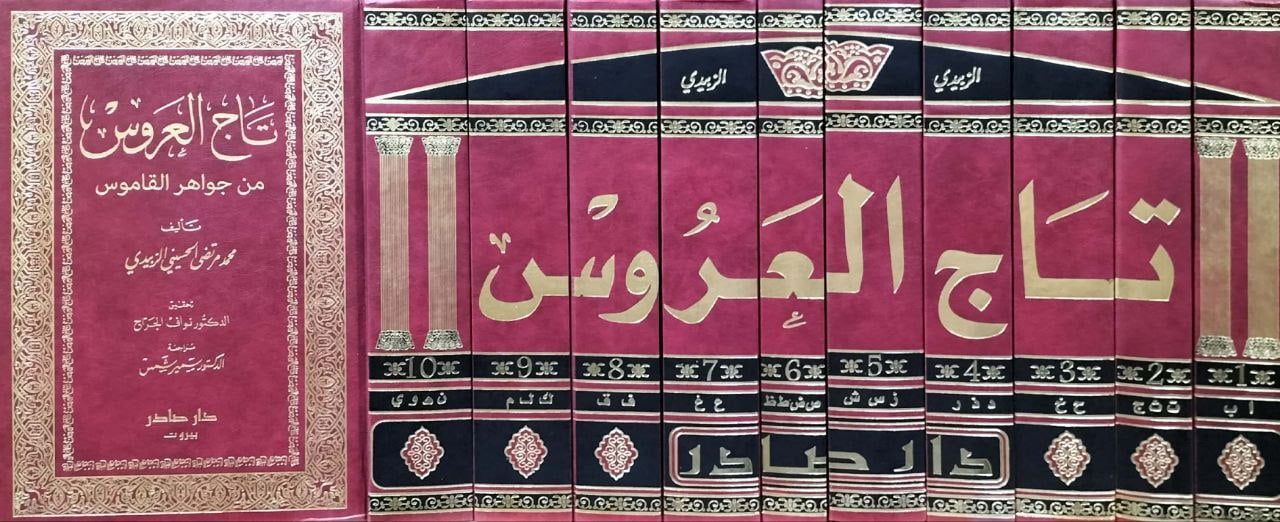 تاج العروس
من جواهر القاموس
تأليف
محمد مرتضى الحسيني الزبيدي
تحقيق
الدكتور نواف الجراح
مراجعة
الدكتور سمير شمس
دار صادر
بيروت
الزبيدي الزبيدي
تَاج العَرُوسْ
1 2 3 4 5 6 7 8 9 10
ا ب ت ث ج ح خ د ذ ر ز س ش ص ض ط ظ ع غ ف ق ك ل م ن ه و ي
دار صادر